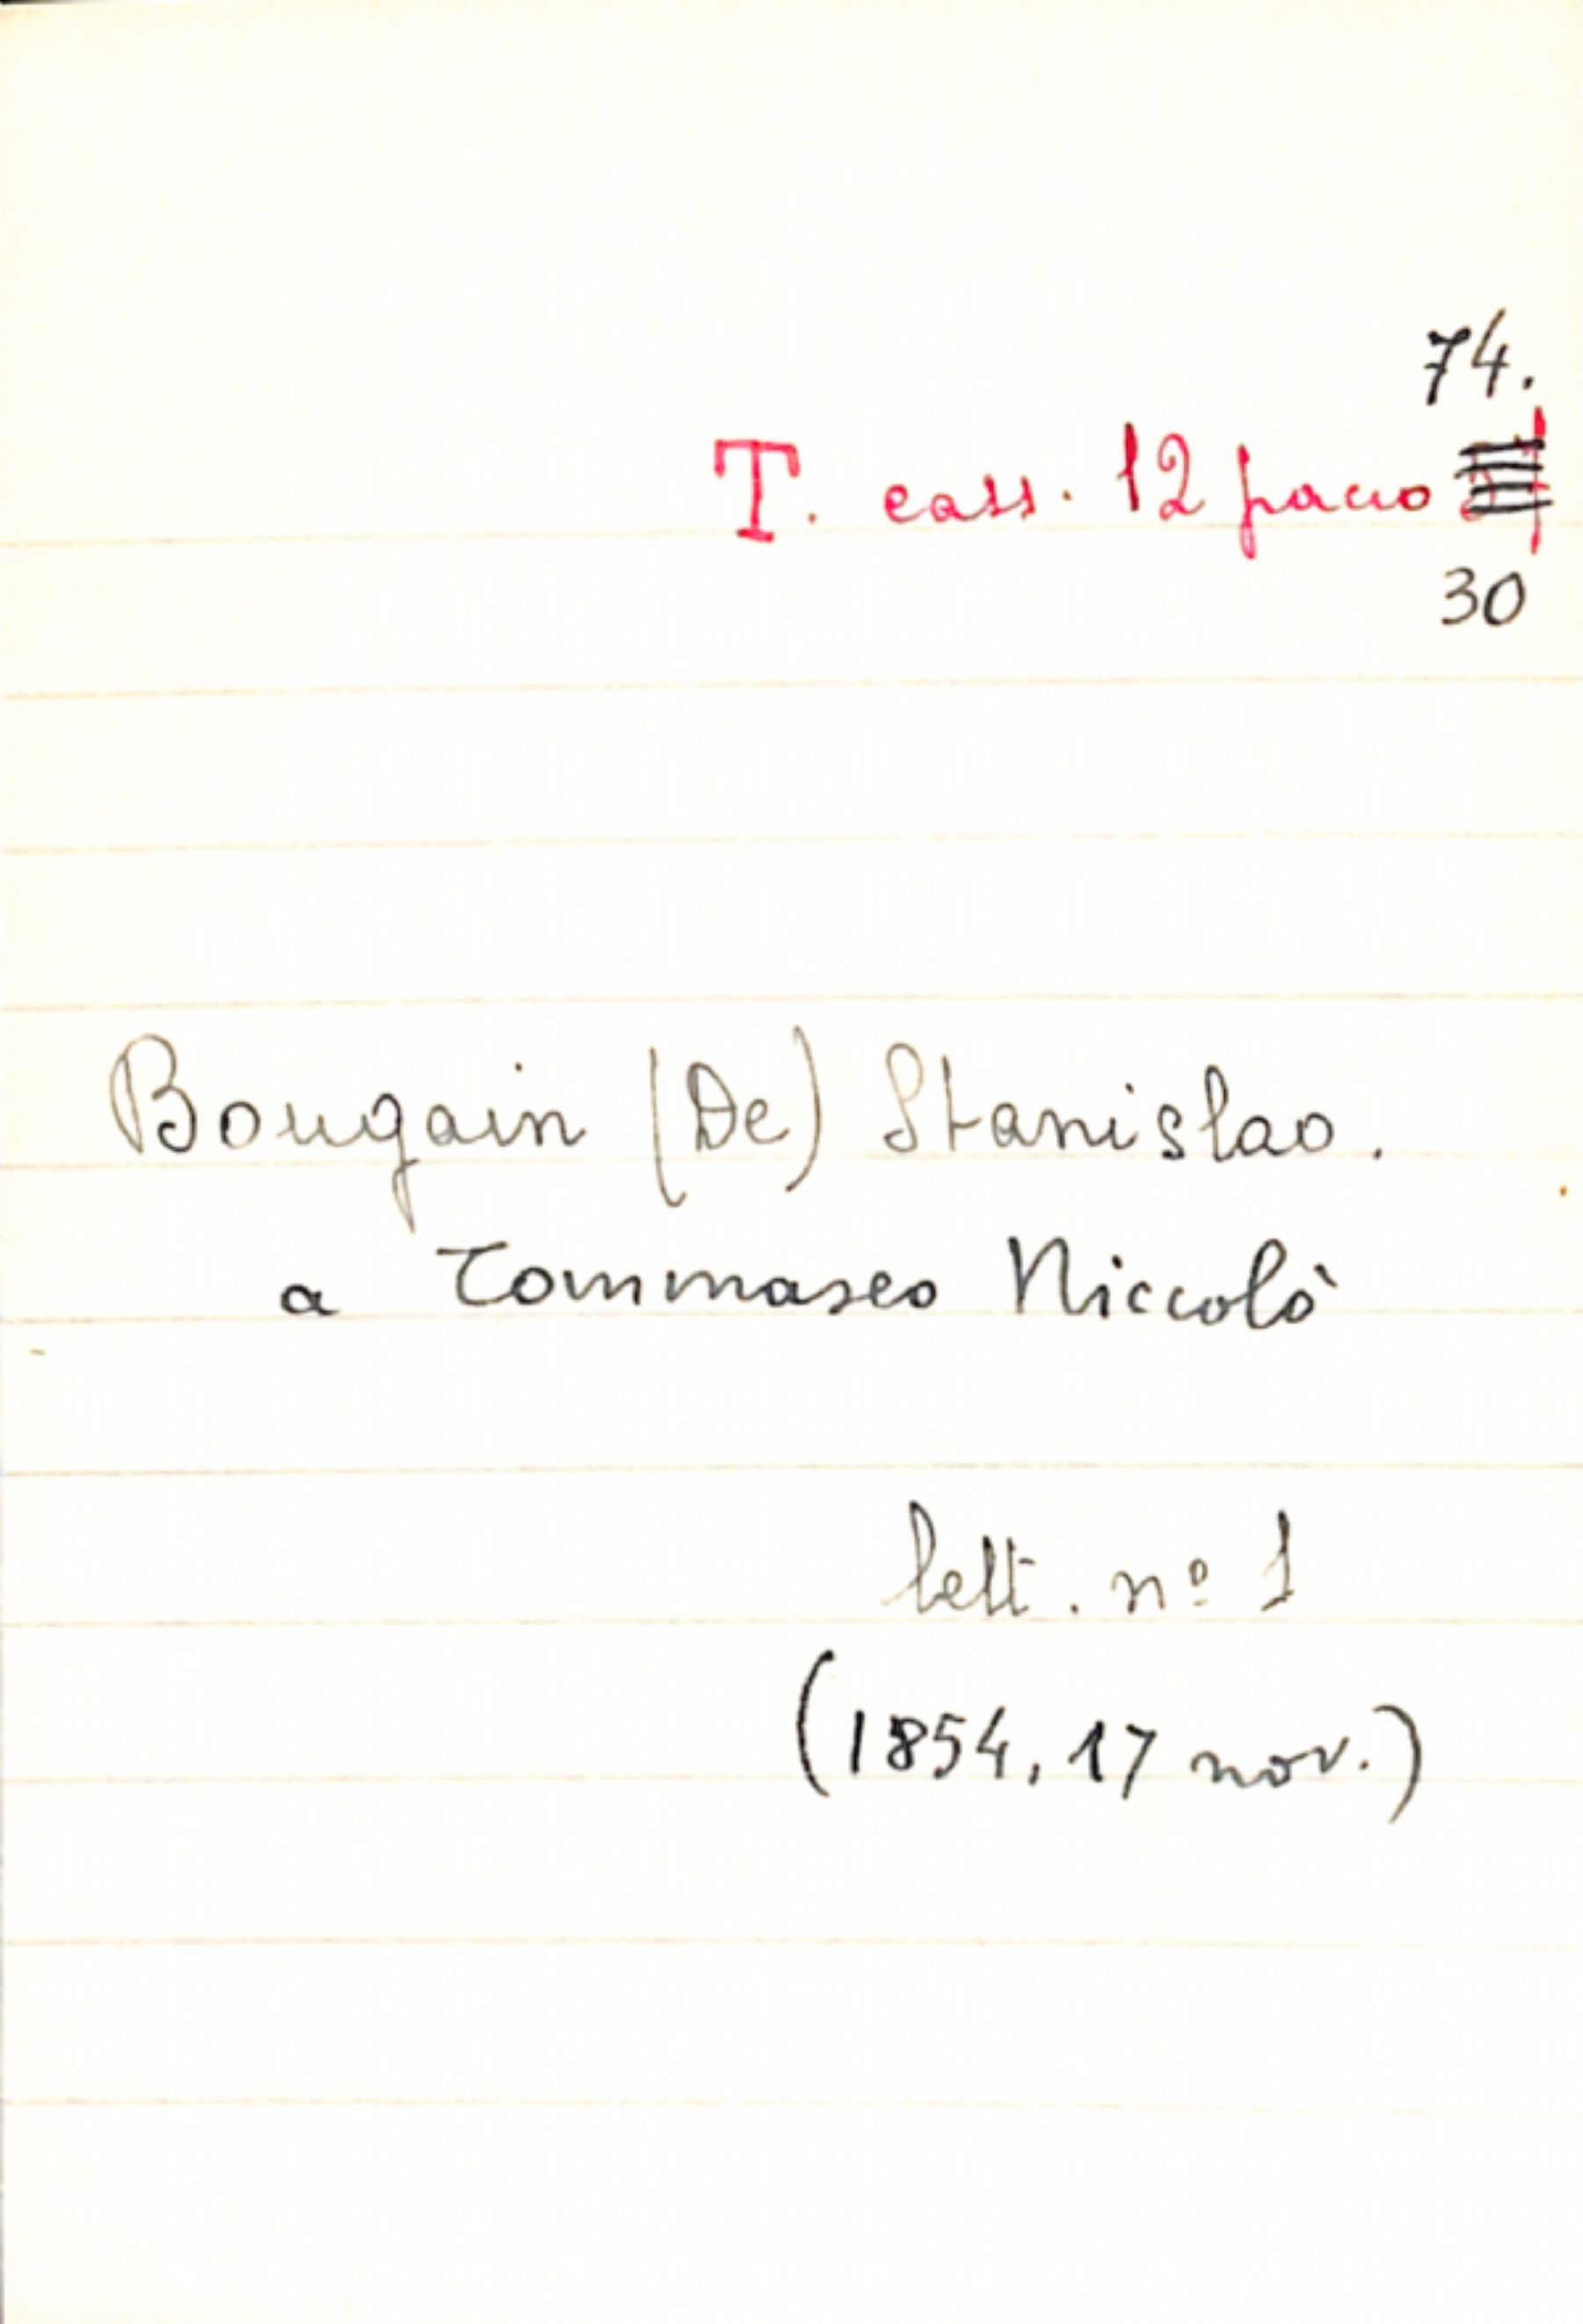 74.
T. cass. 12 pacco
30
Bougain (De) Stanislao.
a Tommaseo Niccolò
lett. nº 1
(1854, 17 nov.)